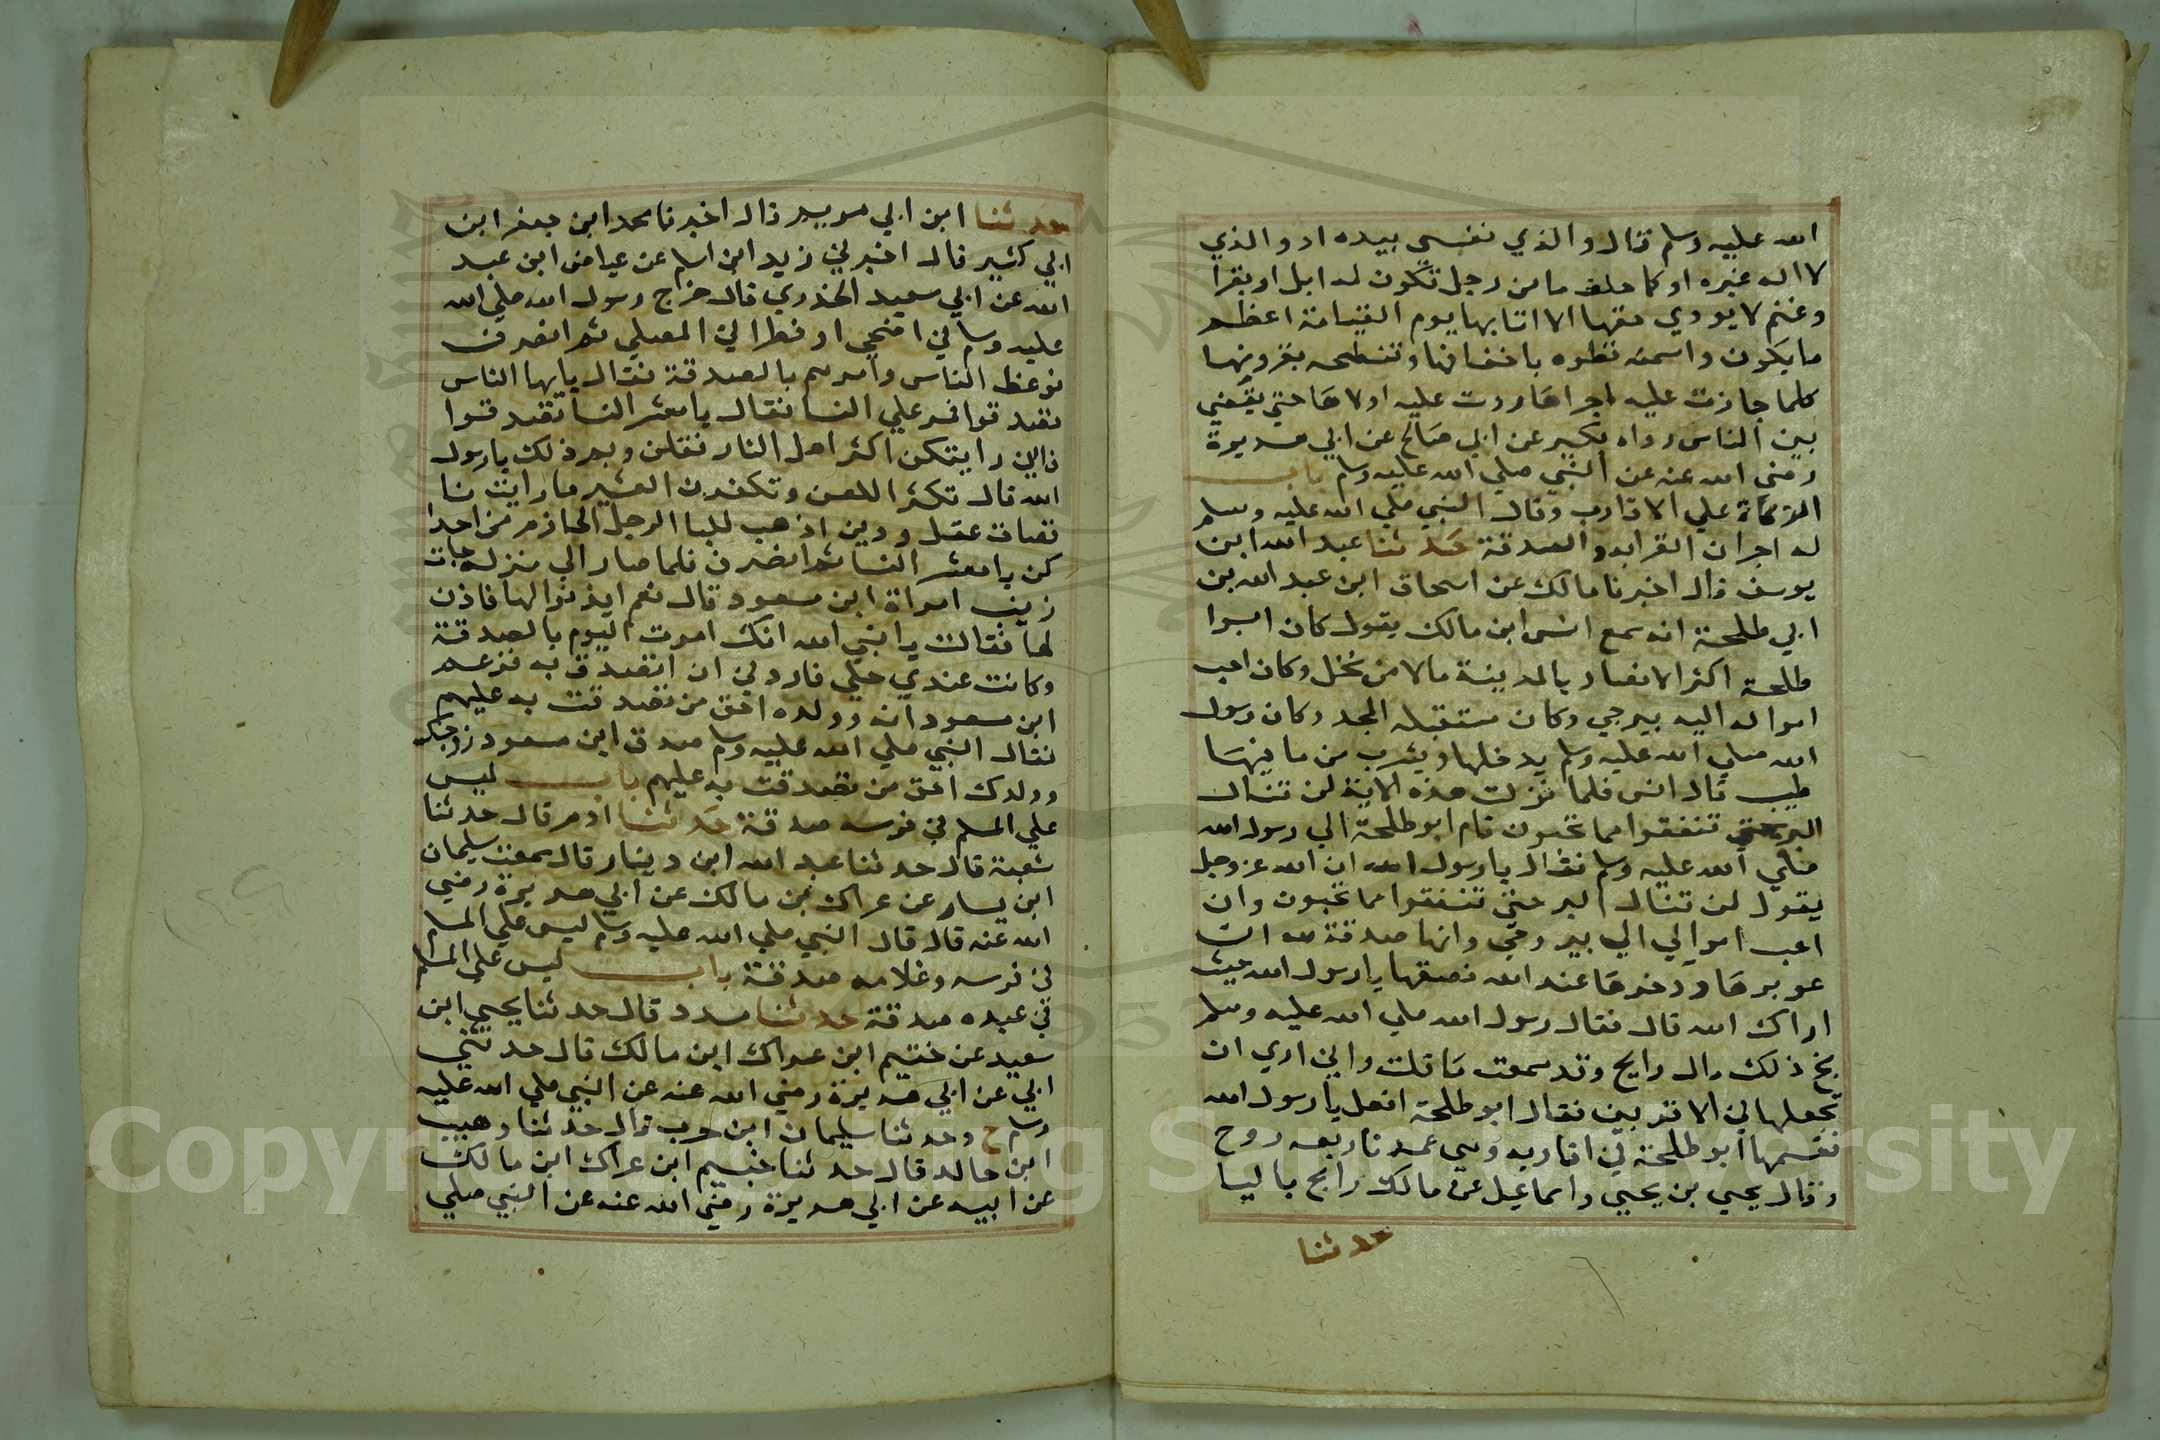 الله عليه وسلم قال والذي نفسي بيده او والذي
لا اله غيره او كما حلف ما من رجل تكون له ابل او بقرا
وغنم لا يودي حقها الا اتا بها يوم القيامة اعظم
ما يكون واسمنه تطوه باخفافها وتنطحه بقرونها
كلما جازت عليه اجراها ردت عليه اولاها حتي يقضي
بين الناس رواه بكير عن ابي صالح عن ابي هريرة
رضي الله عنه عن النبي صلي الله عليه وسلم باب
الزكاة علي الاقارب وقال النبي صلي الله عليه وسلم
له اجران القرابه والصدقة حدثنا عبد الله ابن
يوسف قال اخبرنا مالك عن اسحاق ابن عبد الله بن
ابي طلحة انه سمع انس ابن مالك يقول كان ابوا
طلحة اكثر الانصار بالمدينة مالا من نخل وكان احب
امواله اليه بيرحي وكان مستقبله المجد وكان رسول
الله صلي الله عليه وسلم يدخلها ويشرب من ما فيها
طيب قال انس فلما نزلت هذه الاية لن تنال
البر حتي تنفقوا مما تحبون قام ابو طلحة الي رسول الله
صلي الله عليه وسلم فقال يا رسول الله ان الله عز وجل
يقول لن تنال البر حتي تنفقوا مما تحبون وان
احب اموالي الي بير وحي وانها صدقة لله ات
عو برها وذخرها عند الله فضعها يا رسول الله حيث
اراك الله قال فقال رسول الله صلي الله عليه وسلم
بخ ذلك مال رايح وقد سمعت ما قلت واني اري ان
تجعلها في الاقربين فقال ابو طلحة افعل يا رسول الله
فقسمها ابو طلحة في اقاربه وبني عمه تابعه روح
وقال يحيي بن يحيي واسماعيل عن مالك رابح باليا
حدثنا
حدثنا ابن ابي مريم قال اخبرنا محمد ابن جعفر ابن
ابي كثير قال اخبرني زيد ابن اسلم عن عياض ابن عبد
الله عن ابي سعيد الخذري قال خرج رسول الله صلي الله
عليه وسلم في اضحي او فطرا لي المصلي ثم انصرف
فوعظ الناس وامرهم بالصدقة فقال يايها الناس
تصدقوا فمر علي النسا فقال يا معشر النسا تصدقوا
فاني رايتكن اكثر اهل النار فقلن وبم ذلك يا رسول
الله قال تكثر اللعن وتكفرن العشير ما رايت نا
نقصات عقل ودين اذهب للبا الرجل الحازم من احدا
كن يا معشر النسا ثم انصرف فلما صار الي منزله جات
زينب امراة ابن مسعود قال نعم ايذنوا لها فاذن
لها فقالت يا نبي الله انك امرت اليوم بالصدقة
وكانت عندي حلي فاردني ان اتصدق به فزعم
ابن مسعود انه وولده احق من تصدقت به عليهم
فقال النبي صلي الله عليه وسلم صدق ابن مسعود زوجك
وولدك احق من تصدقت به عليهم باب ليس
علي المسلم في فرسه صدقة حدثنا ادم قال حدثنا
شعبة قال حدثنا عبد الله ابن دينار قال سمعت سليمان
ابن يسار عن عراك بن مالك عن ابي هريرة رضي
الله عنه قال قال النبي صلي الله عليه وسلم ليس علي المسلم
في فرسه وغلامه صدقة باب ليس علي المسلم
في عبده صدقة حدثنا مسدد قال حدثنا يحيي ابن
سعيد عن خثيم ابن عراك ابن مالك قال حدثني
ابي عن ابي هريرة رضي الله عنه عن النبي صلي الله عليه
وسلم ح وحدثنا سليمان ابن حرب قال حدثنا وهيب
ابن خالد قال حدثنا خثيم ابن عراك ابن مالك
عن ابيه عن ابي هريرة رضي الله عنه عن النبي صلي